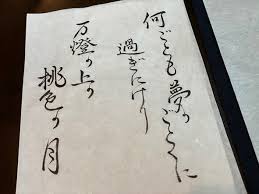 何ごとも夢のごとくに
過ぎにけり
万燈の上の
桃色の月